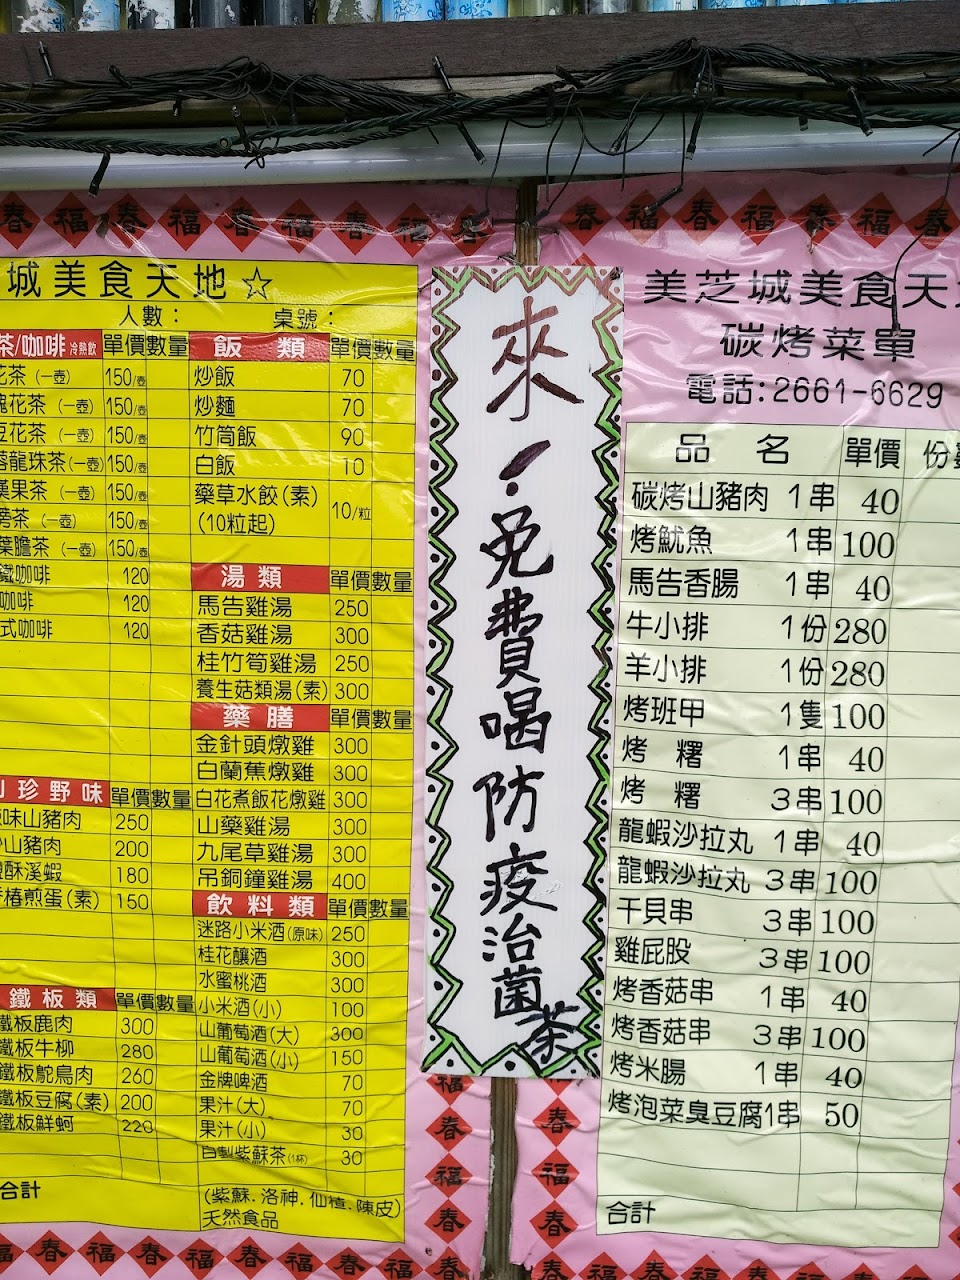 城美食天地☆
人數：
桌號：
茶/咖啡 冷熱飲 單價 數量
花茶（一壺） 150/壺
瑰花茶（一壺） 150/壺
豆花茶（一壺） 150/壺
龍珠茶（一壺） 150/壺
漢果茶（一壺） 150/壺
蒡茶（一壺） 150/壺
葉膽茶（一壺） 150/壺
鐵咖啡 120
咖啡 120
式咖啡 120
珍野味 單價 數量
味山豬肉 250
山豬肉 200
酥溪蝦 180
椿煎蛋(素) 150
鐵板類 單價 數量
鐵板鹿肉 300
鐵板牛柳 280
鐵板鴕鳥肉 260
鐵板豆腐(素) 200
鐵板鮮蚵 220
合計
飯類 單價 數量
炒飯 70
炒麵 70
竹筒飯 90
白飯 10
藥草水餃(素)
(10粒起) 10/粒
湯類 單價 數量
馬告雞湯 250
香菇雞湯 300
桂竹筍雞湯 250
養生菇類湯(素) 300
藥膳 單價 數量
金針頭燉雞 300
白蘭蕉燉雞 300
白花煮飯花燉雞 300
山藥雞湯 300
九尾草雞湯 300
吊銅鐘雞湯 400
飲料類 單價 數量
迷路小米酒(原味) 250
桂花釀酒 300
水蜜桃酒 300
小米酒(小) 100
山葡萄酒(大) 300
山葡萄酒(小) 150
金牌啤酒 70
果汁(大) 70
果汁(小) 30
自製紫蘇茶(1杯) 30
(紫蘇.洛神.仙楂.陳皮)
天然食品
來！免費喝防疫治菌茶
美芝城美食天地
碳烤菜單
電話:2661-6629
品名 單價 份數
碳烤山豬肉 1串 40
烤魷魚 1串 100
馬告香腸 1串 40
牛小排 1份 280
羊小排 1份 280
烤班甲 1隻 100
烤糬 1串 40
烤糬 3串 100
龍蝦沙拉丸 1串 40
龍蝦沙拉丸 3串 100
干貝串 3串 100
雞屁股 3串 100
烤香菇串 1串 40
烤香菇串 3串 100
烤米腸 1串 40
烤泡菜臭豆腐1串 50
合計